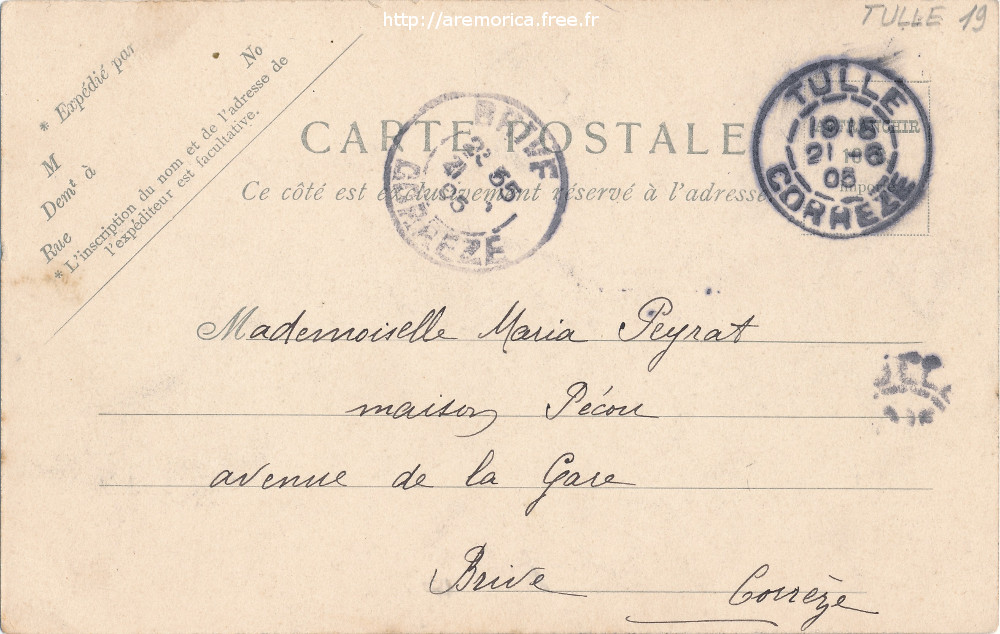 http://aremorica.free.fr
TULLE 19
* Expédié par
M
Demt à
Rue
No
* L'inscription du nom et de l'adresse de
l'expéditeur est facultative.
CARTE POSTALE
Ce côté est exclusivement réservé à l'adresse
BRIVE
21
05
CORREZE
TULLE
19 15
21 6
05
CORREZE
Mademoiselle Maria Peyrat
maison Pécou
avenue de la Gare
Brive Corrèze